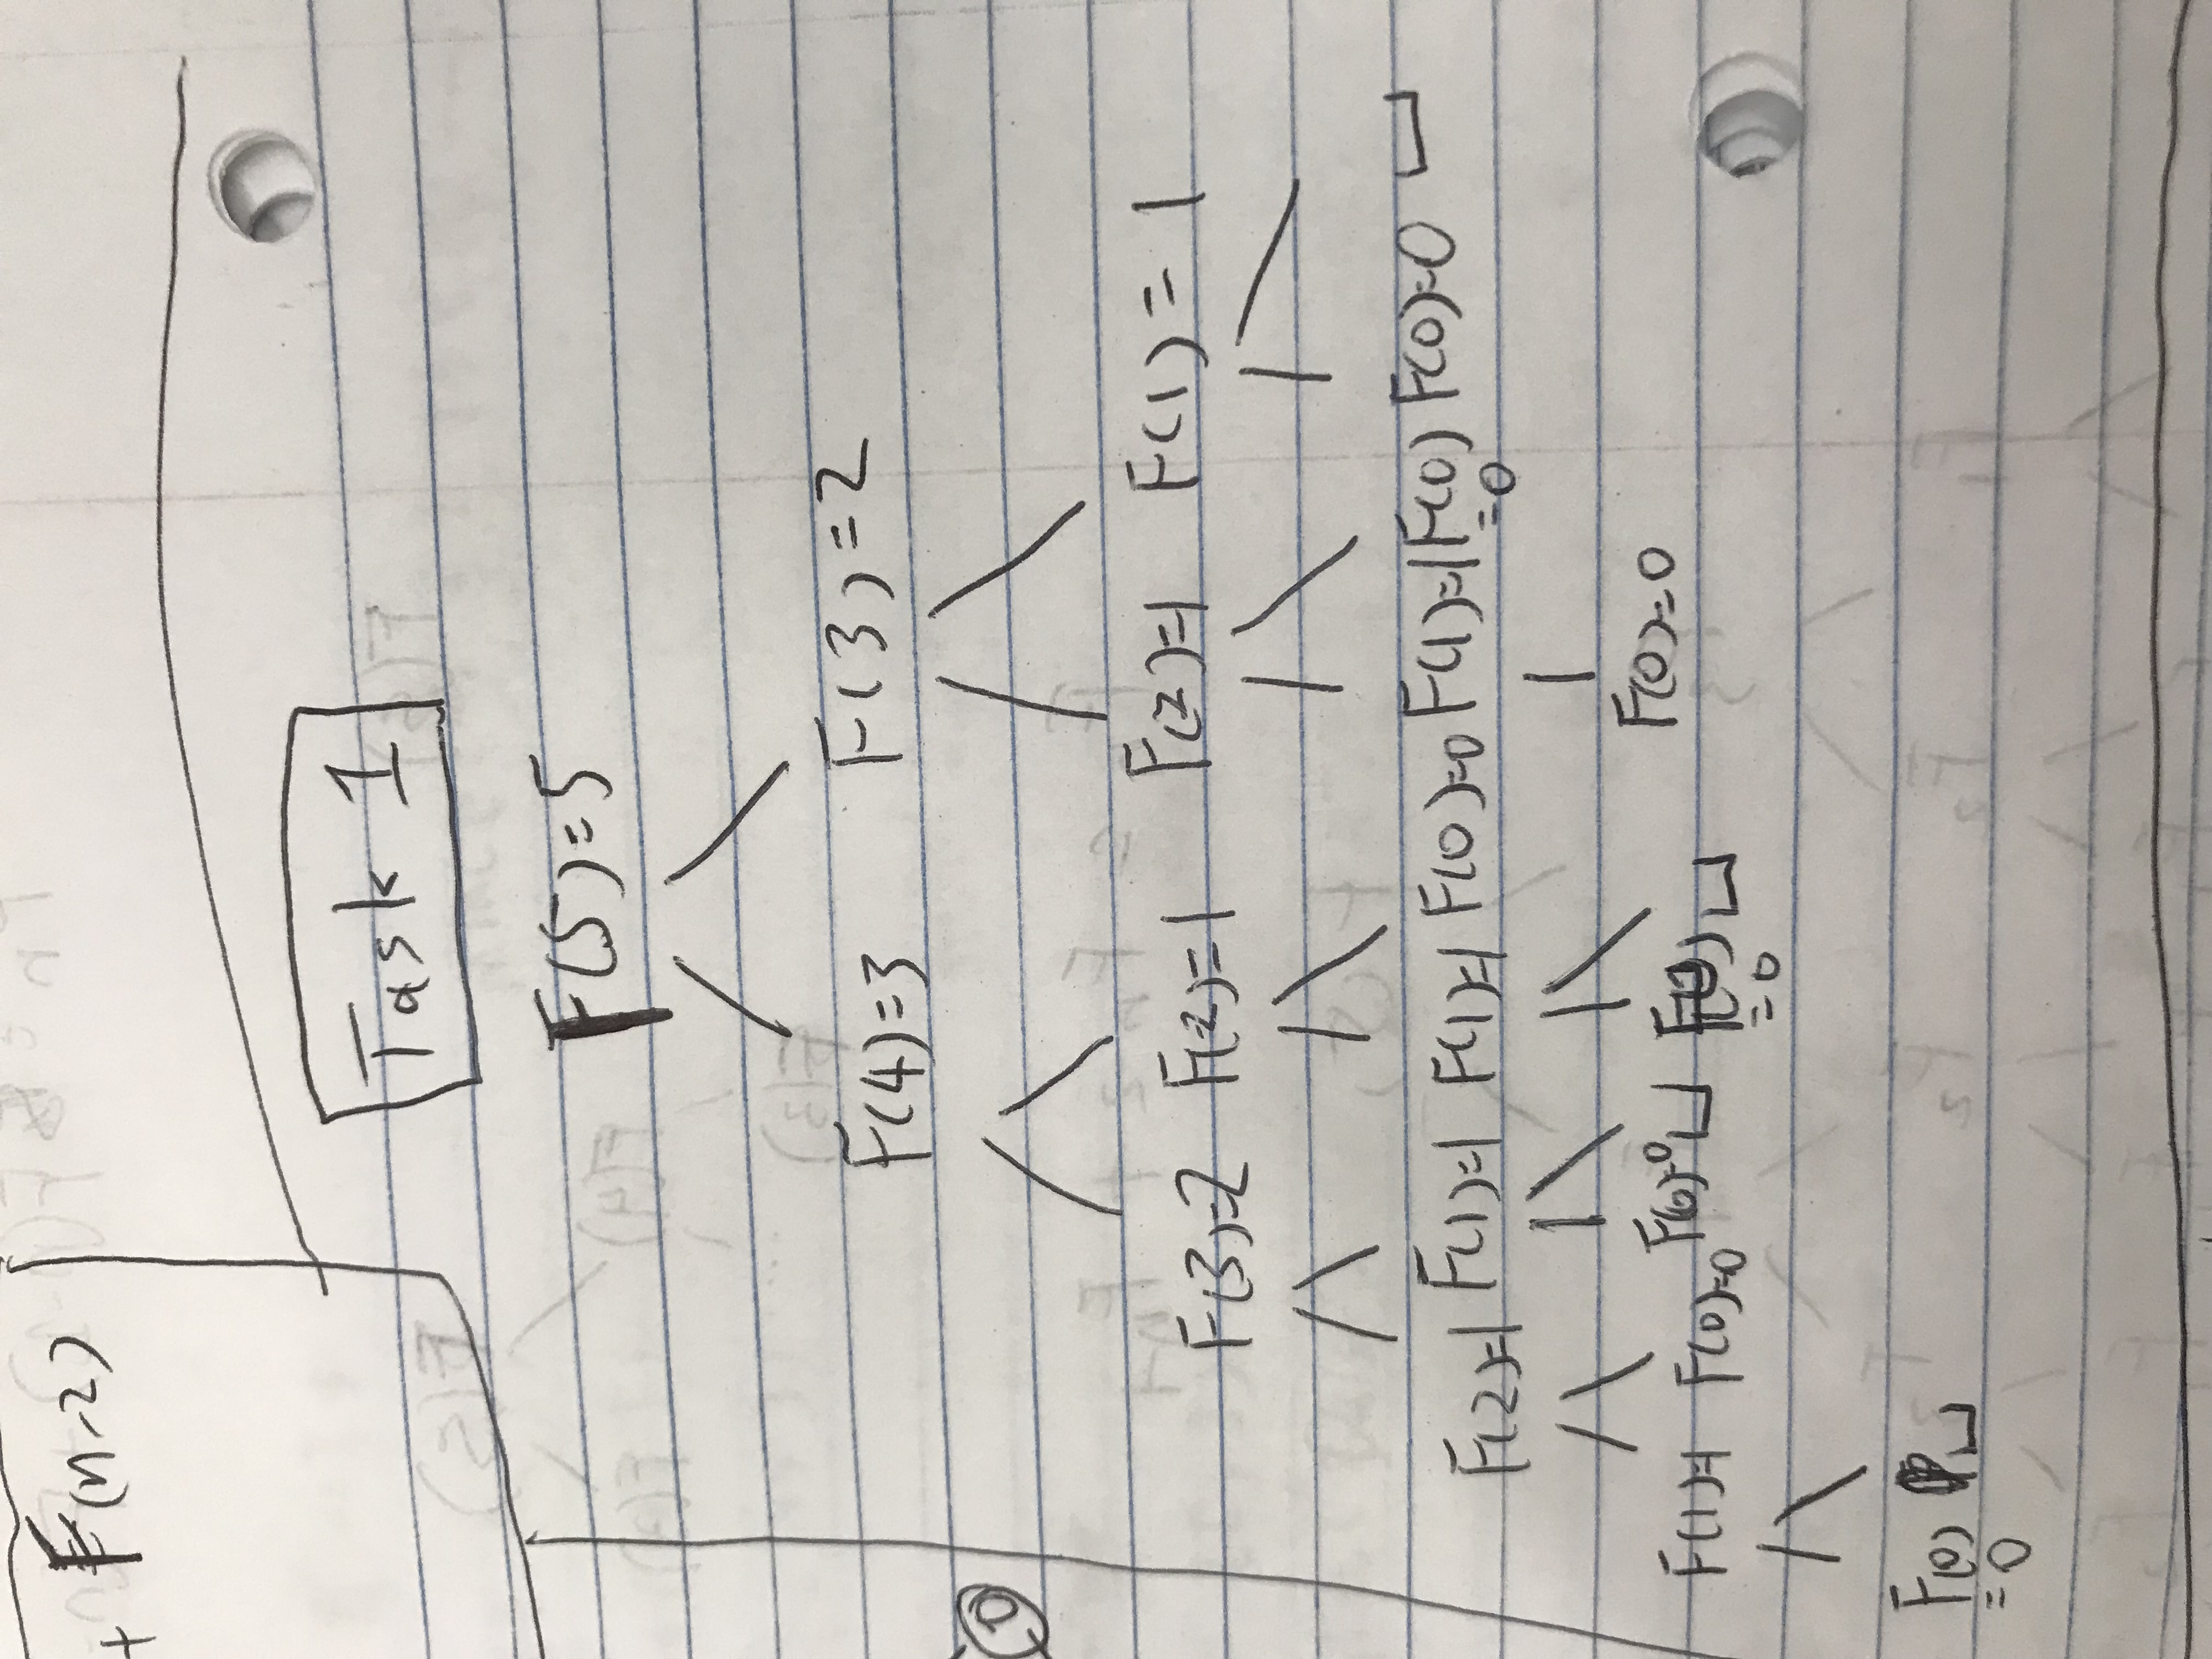 + F(n-2)
Task 1
F(5)=5
F(4)=3 F(3)=2
0
F(3)=2 F(2)=1 F(2)=1 F(1)=1
F(2)=1 F(1)=1 F(1)=1 F(0)=0 F(1)=1 F(0) F(0)=0 ⊔
=0
F(1)=1 F(0)=0 F(0)=0 ⊔ F(0) ⊔ F(0)=0
=0
F(0) ⊔
=0